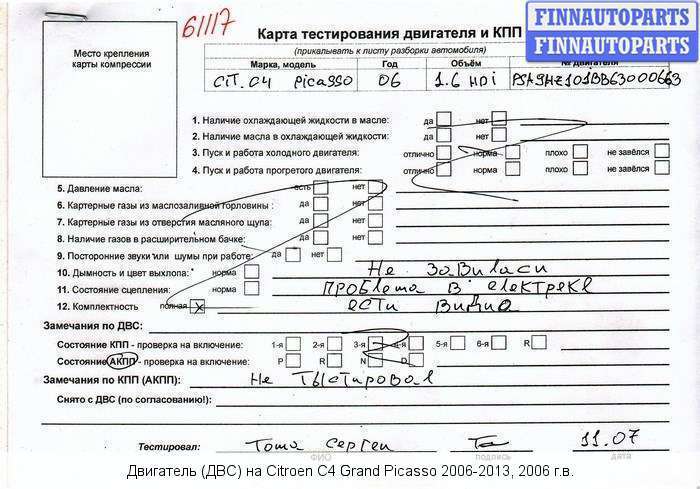 61117
Карта тестирования двигателя и КПП
FINNAUTOPARTS
FINNAUTOPARTS
(прикалывать к листу разборки автомобиля)
Место крепления
карты компрессии
Марка, модель Год Объём № двигателя
CiT. C4 Picasso 06 1.6 HDi
1. Наличие охлаждающей жидкости в масле: да нет
2. Наличие масла в охлаждающей жидкости: да нет
3. Пуск и работа холодного двигателя: отлично норма плохо не завёлся
4. Пуск и работа прогретого двигателя: отлично норма плохо не завёлся
5. Давление масла: есть нет
6. Картерные газы из маслозаливной горловины : да нет
7. Картерные газы из отверстия масляного щупа: да нет
8. Наличие газов в расширительном бачке: да нет
9. Посторонние звуки или шумы при работе: да нет
10. Дымность и цвет выхлопа: норма Не завиласи
11. Состояние сцепления: норма проблема в електреке
12. Комплектность полная X ести видио
Замечания по ДВС:
Состояние КПП - проверка на включение: 1-я 2-я 3-я 4-я 5-я 6-я R
Состояние АКПП - проверка на включение: P R N D
Замечания по КПП (АКПП): Не тыстировал
Снято с ДВС (по согласованию!):
Тестировал: Тома Сергеи 11.07
ФИО подпись дата
Двигатель (ДВС) на Citroen C4 Grand Picasso 2006-2013, 2006 г.в.